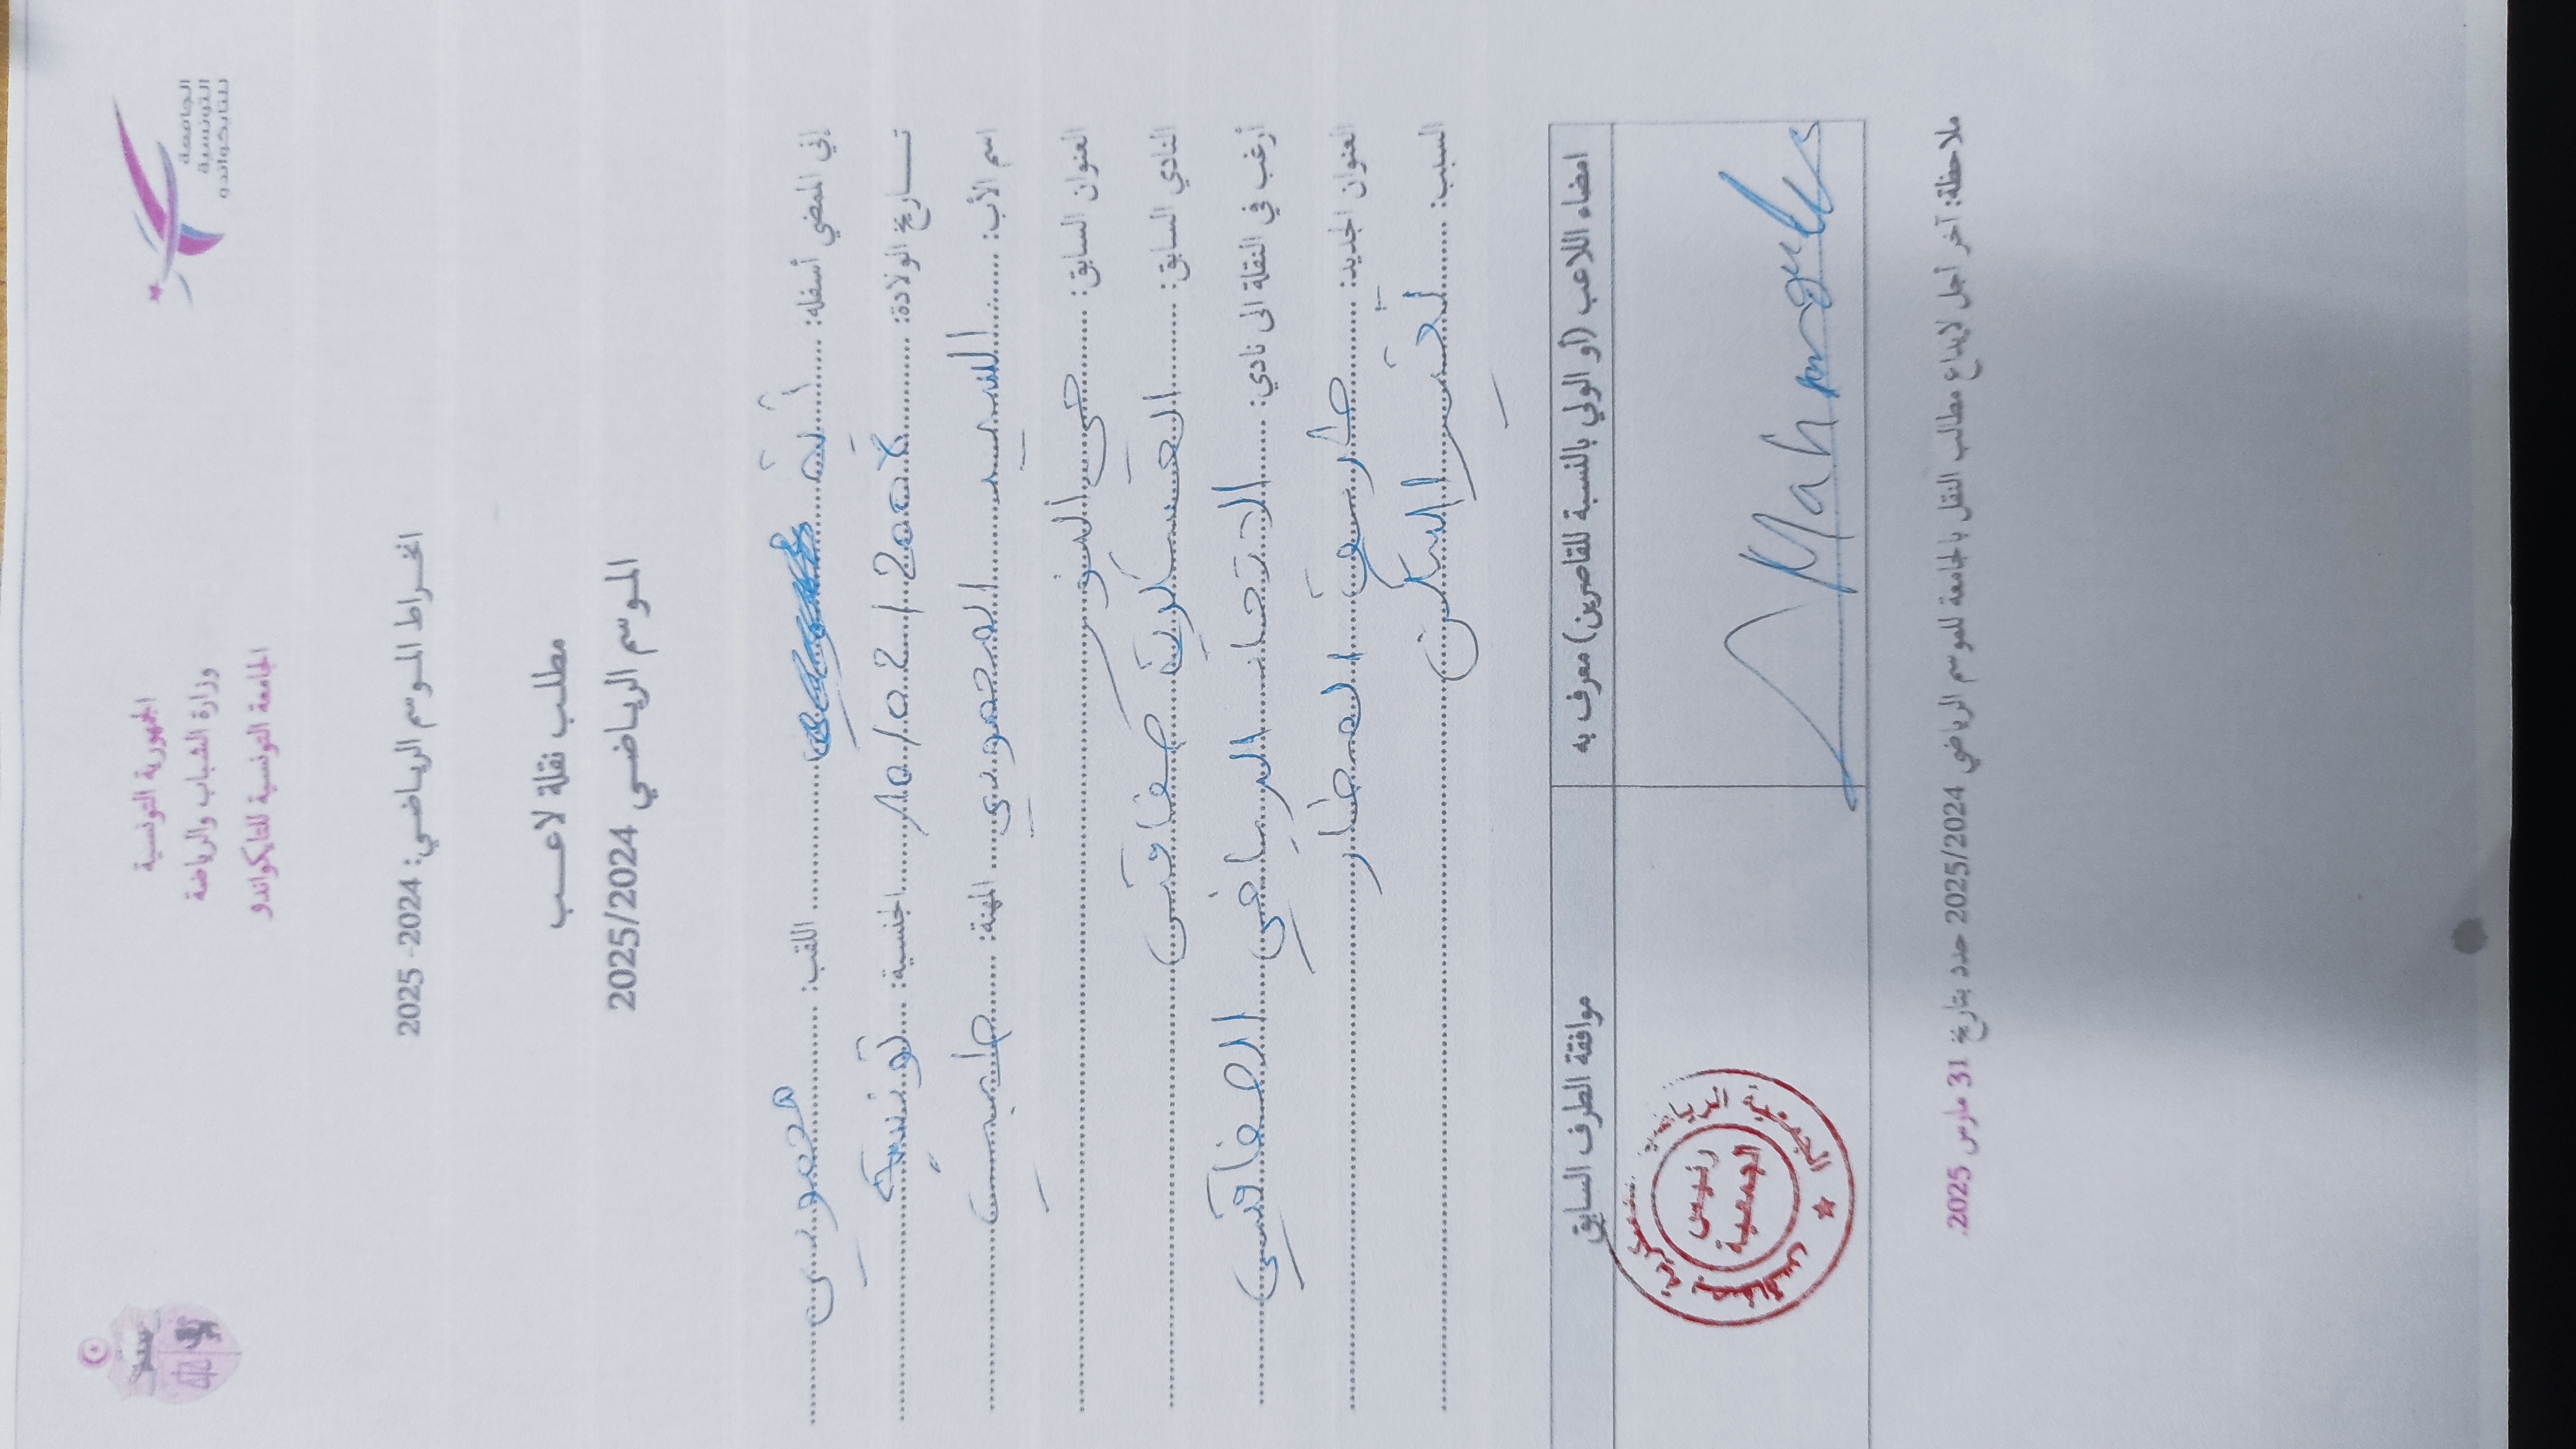 الجامعة
التونسية
للتايكواندو
الجمهورية التونسية
وزارة الشباب والرياضة
الجامعة التونسية للتايكواندو
انخــراط المـوسم الرياضـي: 2024- 2025
مطلـب نقلة لاعــب
المـوسم الرياضـي 2025/2024
إني الممضي أسفله: اللقب:
تـــاريخ الولادة: 10/02/2008 الجنسية: تونسية
اسم الأب: السيد المهنة:
العنوان السابق: حي النور
النادي السابق: العسكري صفاقس
أرغب في النقلة الى نادي: الرياضي الصفاقسي
العنوان الجديد: طريق المطار
السبب: تغير السكن
امضاء اللاعب (أو الولي بالنسبة للقاصرين) معرف به
موافقة الطرف السابق
رئيس
الجمعية
ملاحظة: آخر أجل لايداع مطالب النقل بالجامعة للموسم الرياضي 2025/2024 حدد بتاريخ 31 مارس 2025.